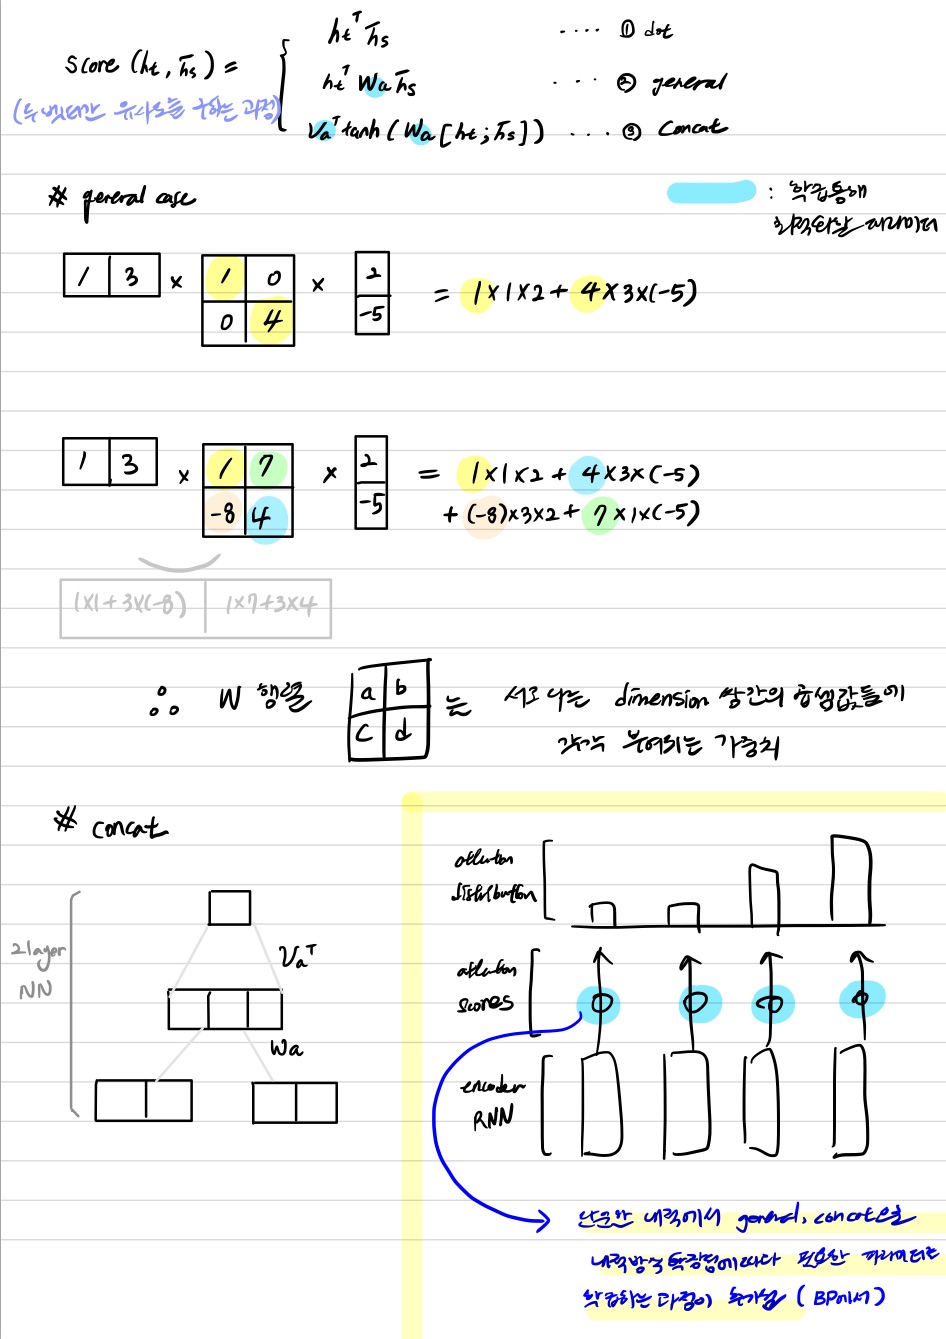 Score (ht, h̄s) =
htᵀ h̄s ···· ① dot
htᵀ Wa h̄s ··· ② general
Vaᵀ tanh (Wa [ht ; h̄s]) ··· ③ Concat
(두 벡터간 유사도를 구하는 과정)
# general case
: 학습통해
최적화할 파라미터
1 3 × 1 0 × 2 = 1×1×2 + 4×3×(-5)
0 4 -5
1 3 × 1 7 × 2 = 1×1×2 + 4×3×(-5)
-8 4 -5 + (-8)×3×2 + 7×1×(-5)
1×1+3×(-8) 1×7+3×4
∴ W 행렬 a b 는 서로 다른 dimension 쌍간의 곱셈값들에
c d 각각 부여되는 가중치
# concat
2 layer
NN
Vaᵀ
Wa
attention
distribution
attention
scores
encoder
RNN
단순한 내적에서 general, concat으로
내적방식 확장됨에따라 필요한 파라미터를
학습하는 과정이 추가됨 (BP에서)